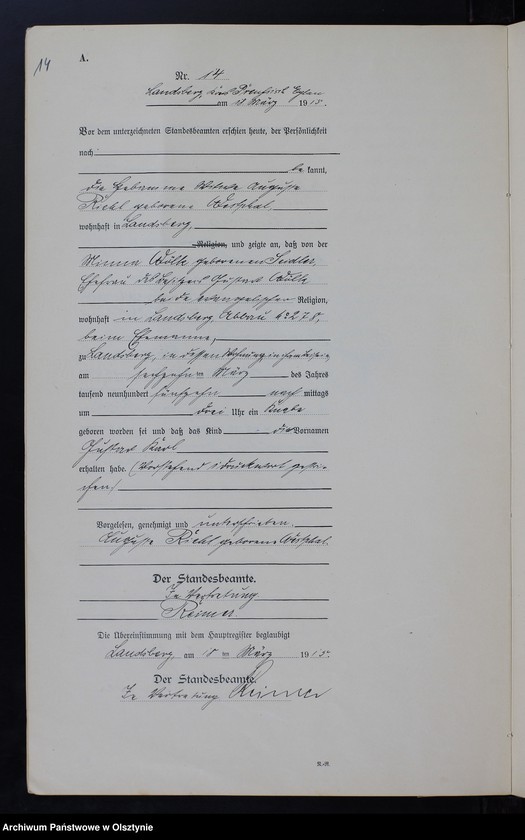 14
A.
Nr. 14
Landsberg, Kreis Preußisch Eylau
am 18 März 1915.
Vor dem unterzeichneten Standesbeamten erschien heute, der Persönlichkeit
nach
be kannt,
die Hebamme Auguste
Riehl geborene Westphal
wohnhaft in Landsberg,
Religion, und zeigte an, daß von der
Minna geborenen Seidler,
Ehefrau des Besitzers Gustav
beide evangelischer Religion,
wohnhaft in Landsberg, Abbau
beim Ehemanne,
zu Landsberg, in dessen Wohnung
am sechzehn ten März des Jahres
tausend neunhundert fünfzehn nach mittags
um drei Uhr ein Knabe
geboren worden sei und daß das Kind die Vornamen
Gustav Karl
erhalten habe. (Vorstehend 1 Druckwort gestri-
chen)
Vorgelesen, genehmigt und unterschrieben.
Auguste Riehl geborene Westphal.
Der Standesbeamte.
In Vertretung
Reimer
Die Übereinstimmung mit dem Hauptregister beglaubigt
Landsberg, am 18 ten März 1915.
Der Standesbeamte.
In Vertretung Reimer
Archiwum Państwowe w Olsztynie